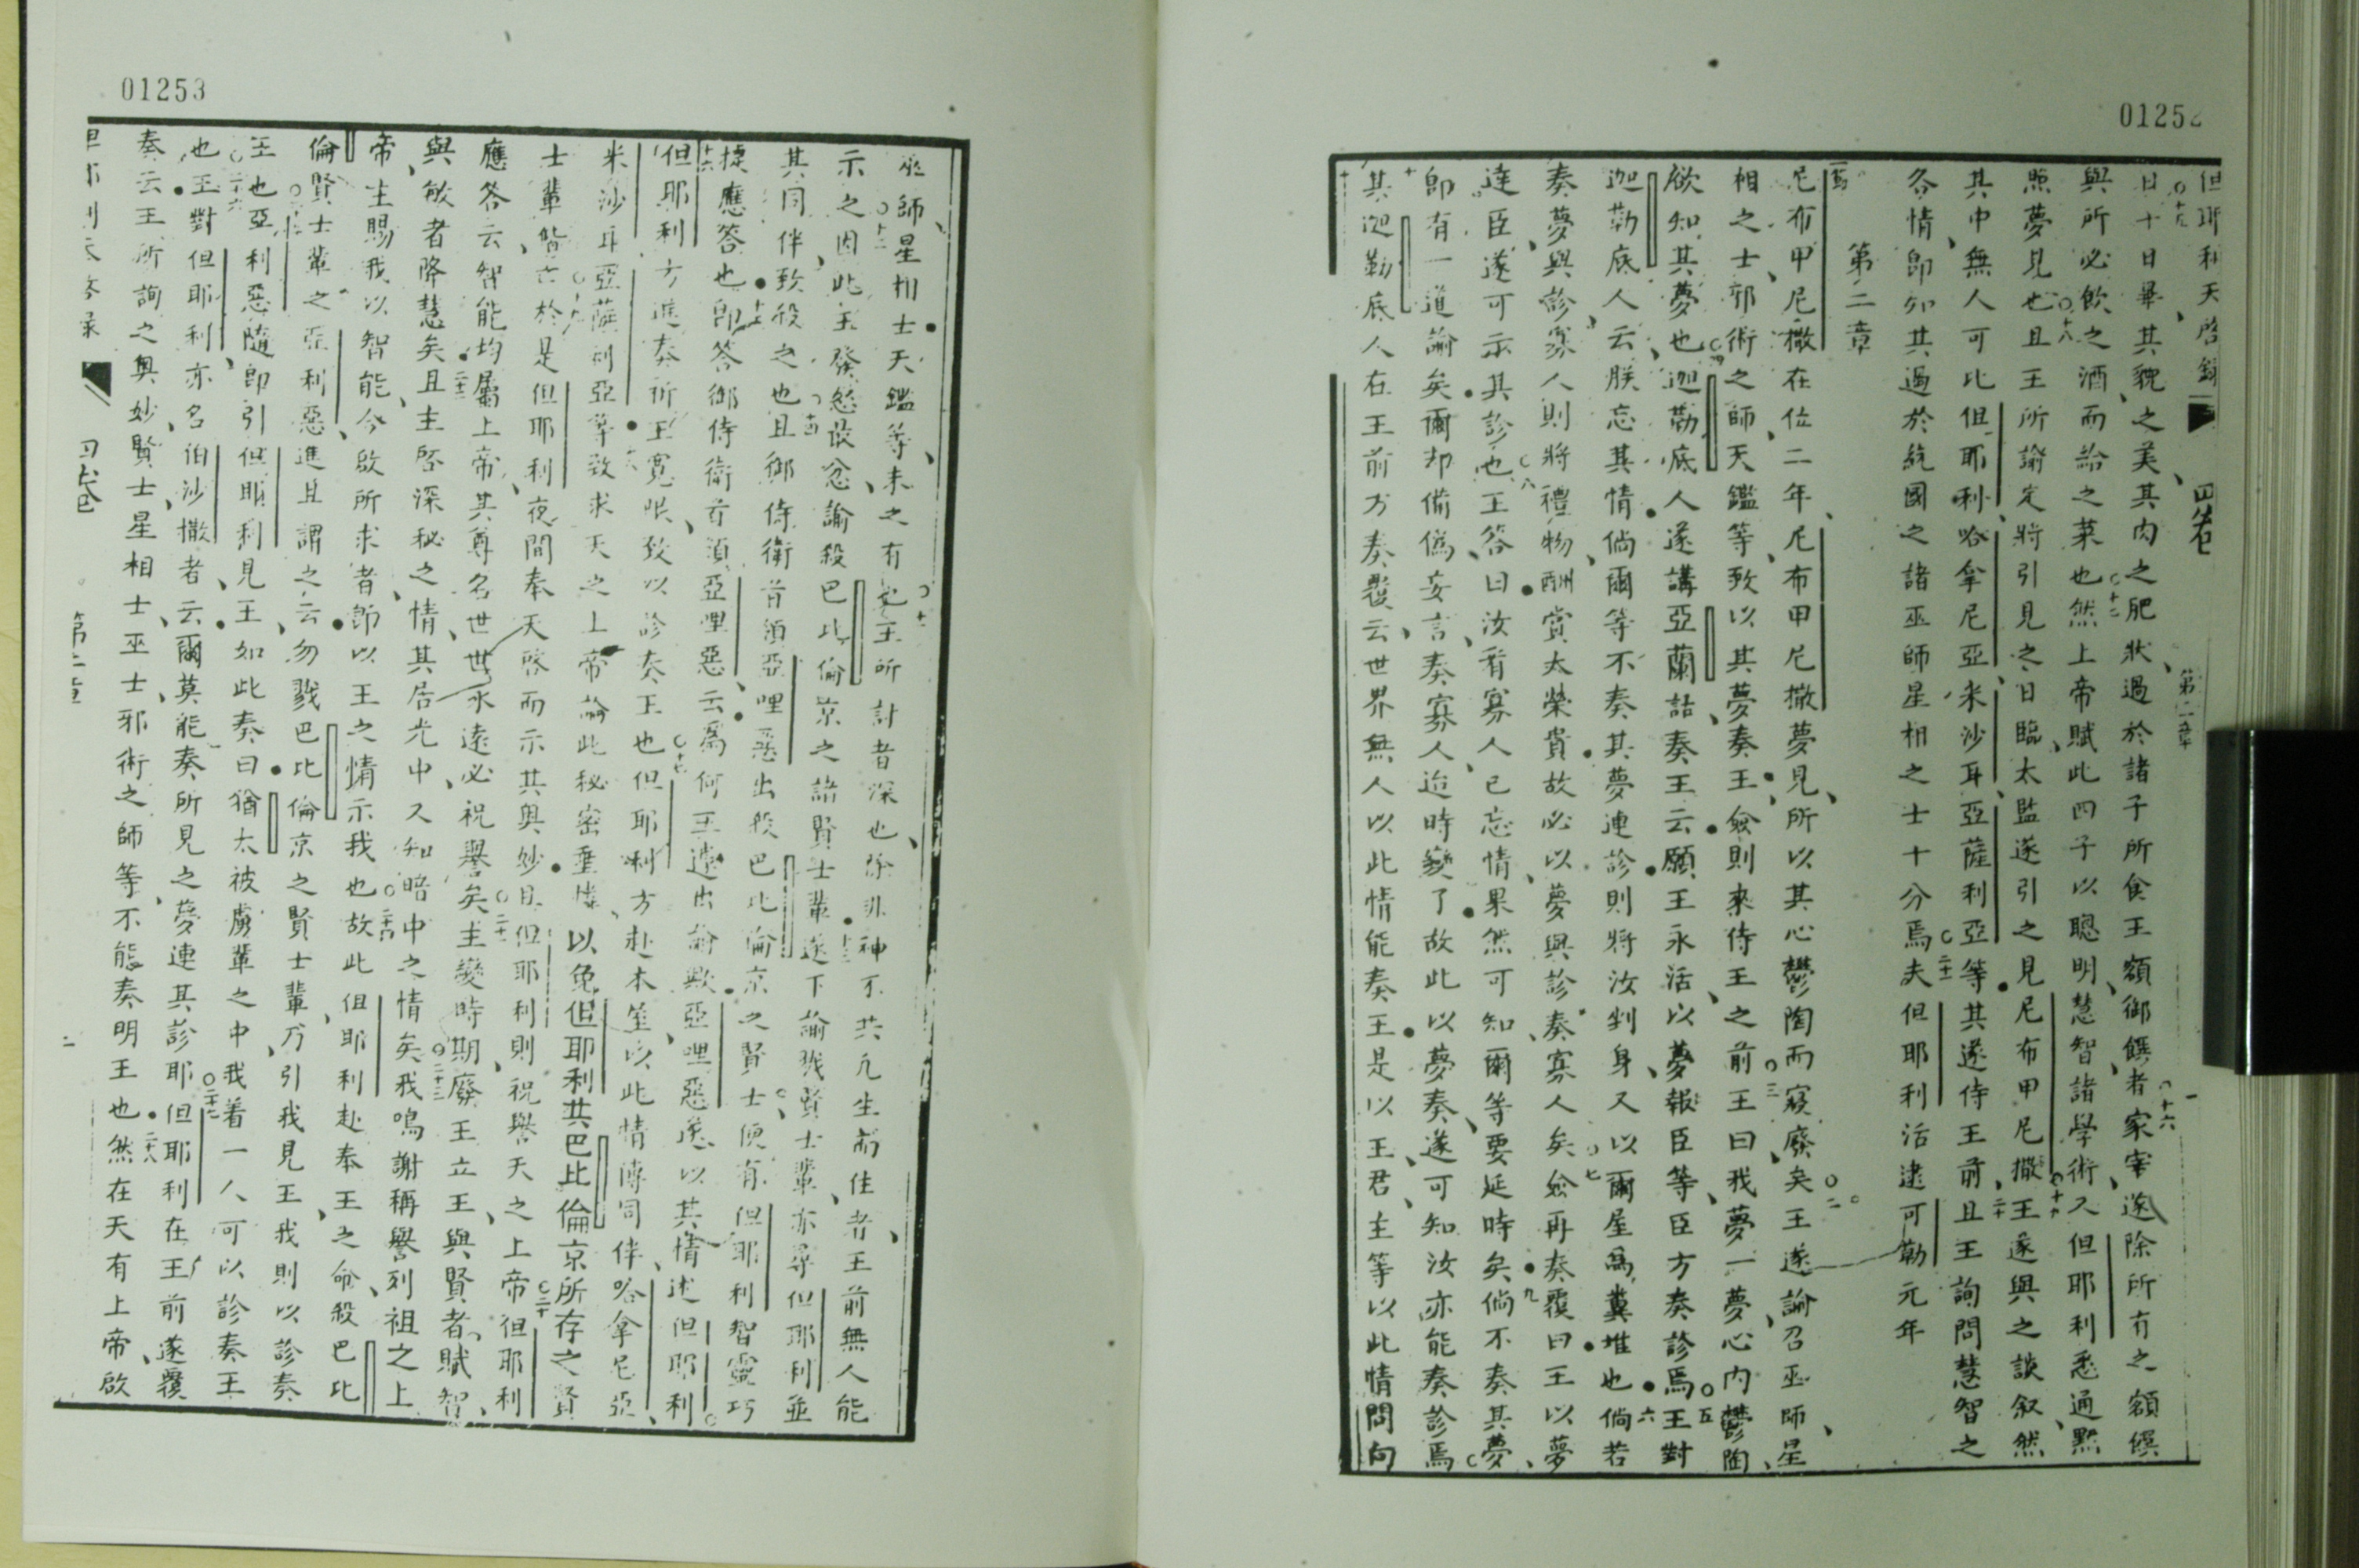 01252
但耶利天啓錄 四卷 第二章 一
日十日畢其貌之美其肉之肥狀過於諸子所食王額御饌者十六家宰遂除所有之額饌
與所必飲之酒而給之菜也十七然上帝賦此四子以聰明慧智諸學術又但耶利悉通黙
照夢見也十八且王所諭定將引見之日臨太監遂引之見尼布甲尼撒王遂與之談叙然
其中無人可比但耶利哈拿尼亞米沙耳亞薩利亞等其遂侍王前二十且王詢問慧智之
各情即卯其過於統國之諸巫師星相之士十分焉二十一夫但耶利活逮可勒元年
焉
第二章
尼布甲尼撒在位二年尼布甲尼撒夢見所以其心鬱陶而寢廢矣二王遂諭召巫師星
相之士邪術之師天鑑等致以其夢奏王僉則來侍王之前三王曰我夢一夢心內鬱陶
欲知其夢也四迦勒底人遂講亞蘭話奏王云願王永活以夢報臣等臣方奏診焉五王對
迦勒底人云朕忘其情倘爾等不奏其夢連診則將汝剉身又以爾屋爲糞堆也六倘若
奏夢與診寡人則將禮物酬賞太榮貴故必以夢與診奏寡人矣七僉再奏覆曰王以夢
達臣遂可示其診也八王答曰汝看寡人已忘情果然可知爾等要延時矣九倘不奏其夢
即有一道諭矣爾却備僞妄言奏寡人迨時變了故此以夢奏遂可知汝亦能奏診焉
十其迦勒底人在王前方奏覆云世界無人以此情能奏王是以王君主等以此情問向
01253
巫師星相士天鑑等未之有也十一王所計者深也除非神不共凡生而住者王前無人能
示之十二因此王發怒忿諭殺巴比倫京之諸賢士輩十三遂下諭戮賢士輩亦尋但耶利並
其同伴致殺之也十四且御侍衛首領亞哩惡出殺巴比倫京之賢士便有但耶利智靈巧
捷應答也十五即答御侍衛首領亞哩惡云爲何王遽出諭歟亞哩惡遂以其情述但耶利
十六但耶利方進奏祈王寬限致以診奏王也十七但耶利方赴本笙以此情傳同伴哈拿尼亞
米沙耳亞薩利亞等十八致求天之上帝論此秘密垂憐以免但耶利共巴比倫京所存之賢
士輩皆亡十九於是但耶利夜間奉天啓而示其奥妙且但耶利則祝譽天之上帝二十但耶利
應答云智能均屬上帝其尊名世世永遠必祝譽矣二十一主變時期廢王立王與賢者賦智
與敏者降慧矣二十二且主啓深秘之情其居光中又知暗中之情矣二十三我鳴謝稱譽列祖之上
帝主賜我以智能今啟所求者即以王之情示我也二十四故此但耶利赴奉王之命殺巴比
倫賢士輩之亞利惡進且謂之云勿戮巴比倫京之賢士輩乃引我見王我則以診奏
王也二十五亞利惡隨即引但耶利見王如此奏曰猶太被虜輩之中我着一人可以診奏王
也二十六王對但耶利亦名伯沙撒者云爾莫能奏所見之夢連其診耶二十七但耶利在王前遂覆
奏云王所詢之奥妙賢士星相士巫士邪術之師等不能奏明王也二十八然在天有上帝啟
但耶利天啓錄 四卷 第二章 二